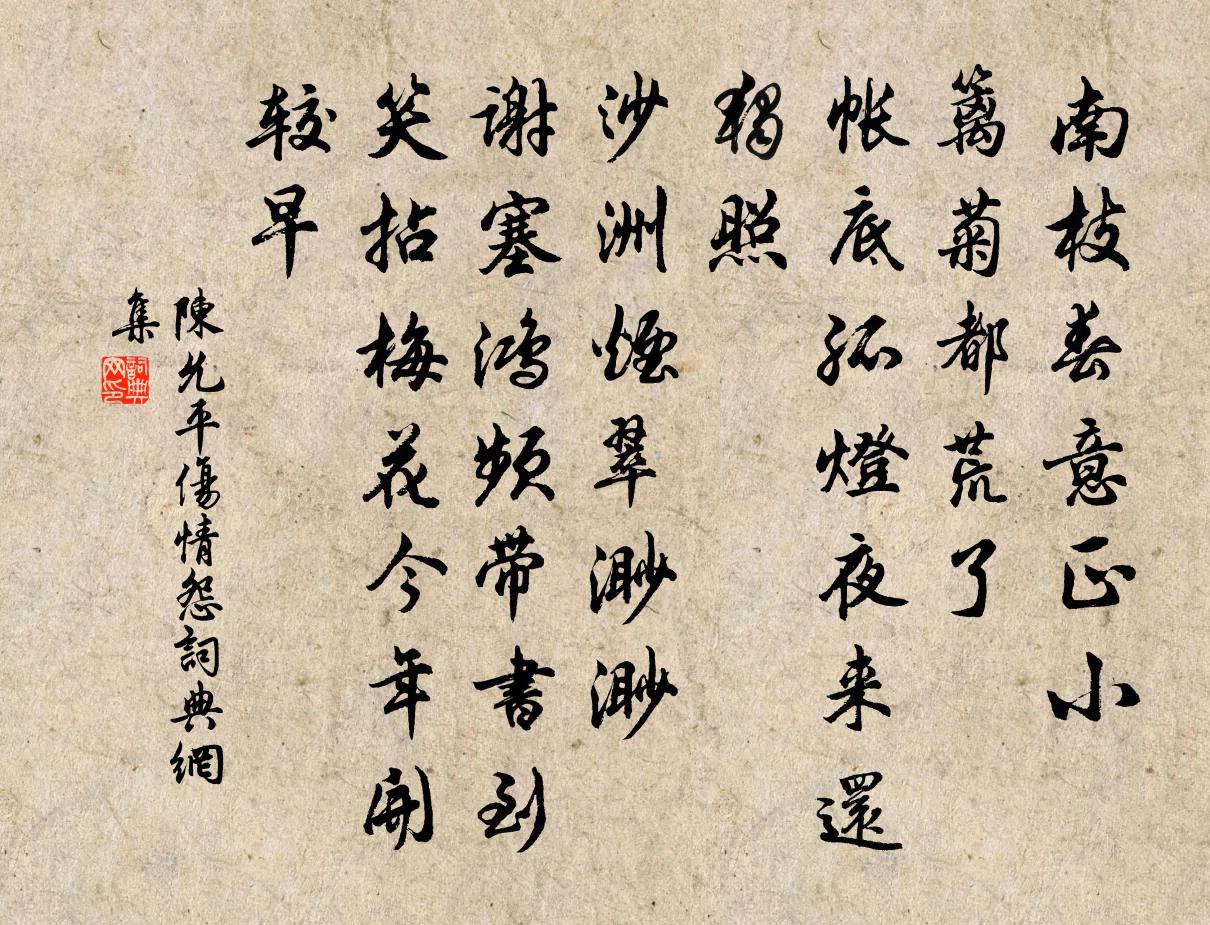 南枝春意正小
籬菊都荒了
帳底孤燈夜来還
獨照
沙洲煙翠渺渺
謝塞鴻頻带書到
笑拈梅花今年開
较早
陳允平傷情怨詞典網
集
詞典
网印